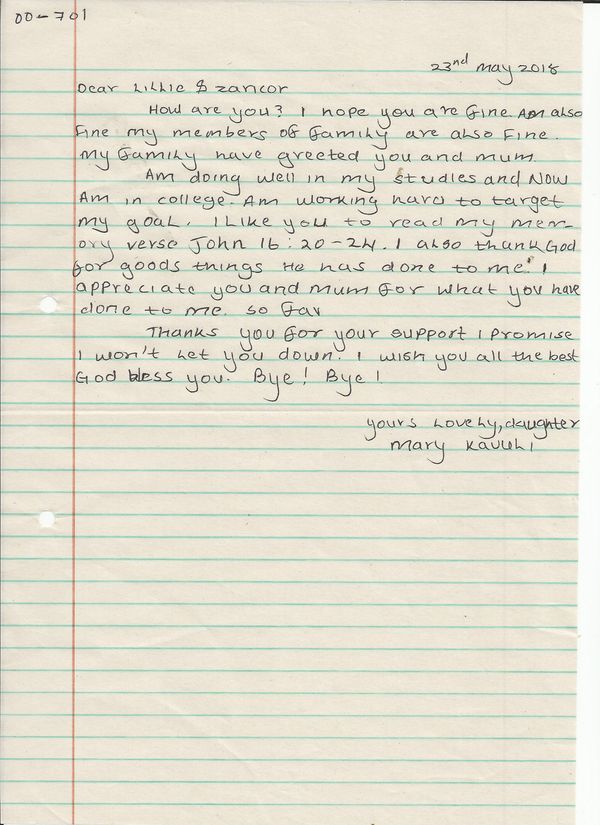 00-701
23nd May 2018
Dear Lillie & Zancor
How are you? I hope you are fine. Am also
fine my members of family are also fine.
My family have greeted you and mum.
Am doing well in my studies and now
Am in college. Am working hard to target
my goal. I like you to read my mem-
ory verse John 16:20-24. I also thank God
for goods things He has done to me! I
appreciate you and mum for what you have
done to me. so far
Thanks you for your support I promise
I won't let you down. I wish you all the best
God bless you. Bye! Bye!
yours Lovely, daughter
Mary